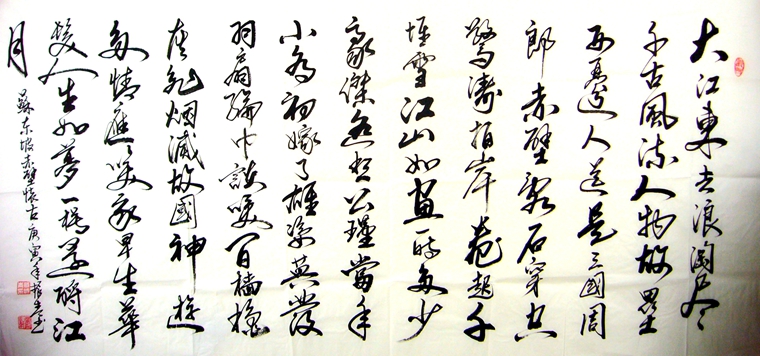 大江東去浪淘尽
千古風流人物故壘
西邊人道是三國周
郎赤壁乱石穿空
驚濤拍岸卷起千
堆雪江山如画一时多少
豪傑遥想公瑾當年
小乔初嫁了雄姿英發
羽扇綸巾談笑间檣櫓
灰飞烟滅故國神遊
多情應笑我早生華
髮人生如夢一樽還酹江
月
蘇东坡赤壁懷古庚寅年